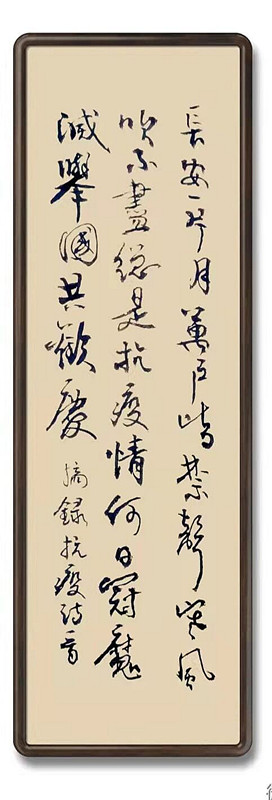 長安一片月萬戶皆禁聲寒風
吹不盡總是抗疫情何日冠魔
滅舉國共歡慶摘錄抗疫詩一首